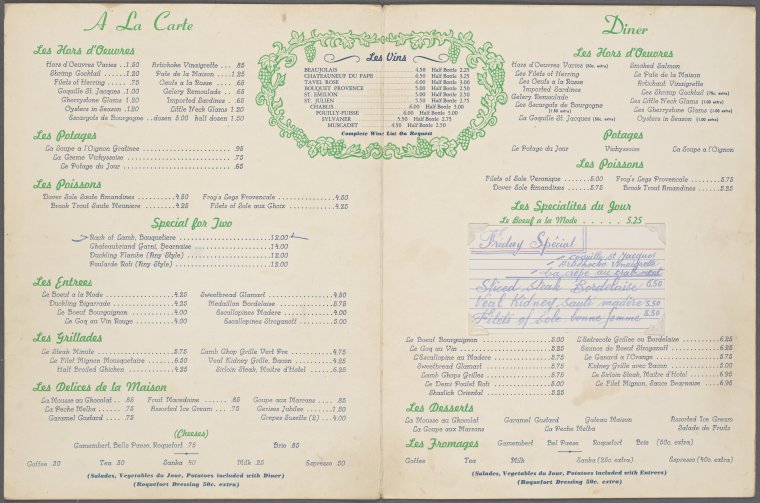 A La Carte
Les Hors d'Oeuvres
Hors d'Oeuvres Varies ..1.50 Artichoke Vinaigrette ... .85
Shrimp Cocktail ........1.20 Pate de la Maison .... 1.25
Filets of Herring ..... .75 Oeufs a la Russe .... .65
Coquille St. Jacques ..1.00 Celery Remoulade .. .65
Cherrystone Clams ..1.20 Imported Sardines .. .65
Oysters in Season ....1.20 Little Neck Clams 1.20
Escargots de Bourgogne ..dozen 3.00 half dozen 1.50
Les Potages
La Soupe a l'Oignon Gratinee .95
La Creme Vichyssoise .75
Le Potage du Jour .65
Les Poissons
Dover Sole Saute Amandines 4.50 Frog's Legs Provencale 4.50
Brook Trout Saute Meuniere 4.25 Filets of Sole aux Choix 4.25
Special for Two
Rack of Lamb, Bouquetiere 12.00
Chateaubriand Garni, Bearnaise 14.00
Duckling Flambe (Any Style) 12.00
Poularde Roti (Any Style) 12.00
Les Entrees
Le Boeuf a la Mode 4.25 Sweetbread Glamart 4.50
Duckling Bigarrade 4.25 Medaillon Bordelaise 5.75
Le Boeuf Bourguignon 4.00 Escallopines Madere 4.00
Le Coq au Vin Rouge 4.00 Escallopines Stroganoff 5.00
Les Grillades
Le Steak Minute 5.75 Lamb Chop Grille Vert Pre 4.75
Le Filet Mignon Mousquetaire 6.50 Veal Kidney Grille, Bacon 4.25
Half Broiled Chicken 4.25 Sirloin Steak, Maitre d'Hotel 6.25
Les Delices de la Maison
La Mousse au Chocolat .. .85 Fruit Macedoine .85 Coupe aux Marrons .85
La Peche Melba .75 Assorted Ice Cream .75 Cerises Jubilee 1.50
Caramel Custard .75 Crepes Suzette (2) 4.00
(Cheeses)
Camembert, Belle Paese, Roquefort .75 Brie .85
Coffee .20 Tea .30 Sanka .40 Milk .25 Espresso .50
(Salades, Vegetables du Jour, Potatoes included with Diner)
(Roquefort Dressing 50c. extra)
Les Vins
BEAUJOLAIS 4.50 Half Bottle 2.25
CHATEAUNEUF DU PAPE 6.50 Half Bottle 3.25
TAVEL ROSE 6.00 Half Bottle 3.00
BOUQUET PROVENCE 5.00 Half Bottle 2.50
ST. EMILION 5.00 Half Bottle 2.50
ST. JULIEN 5.50 Half Bottle 2.75
CHABLIS 6.00 Half Bottle 3.00
POUILLY-FUISSE 6.00 Half Bottle 3.00
SYLVANER 5.50 Half Bottle 2.75
MUSCADET 4.50 Half Bottle 2.50
Complete Wine List On Request
Diner
Les Hors d'Oeuvres
Hors d'Oeuvres Varies (50c. extra) Smoked Salmon
Les Filets of Herring Le Pate de la Maison
Les Oeufs a la Russe Artichaut Vinaigrette
Imported Sardines Les Shrimp Cocktail (75c. extra)
Celery Remoulade Les Little Neck Clams (1.00 extra)
Les Escargots de Bourgogne (1.00 extra) Les Cherrystone Clams (1.00 extra)
La Coquille St. Jacques (50c. extra) Oysters in Season (1.00 extra)
Potages
Le Potage du Jour Vichyssoise La Soupe a l'Oignon
Les Poissons
Filets of Sole Veronique 5.00 Frog's Legs Provencale 5.75
Dover Sole Amandines 5.75 Brook Trout Amandines 5.25
Les Specialites du Jour
Le Boeuf a la Mode . . . . . . 5.25
Friday Spécial
coquille st Jacques
Artichoke Vinaigrette
La crêpe au crabmeat
Sliced Steak Bordelaise 6.50
Veal Kidney sauté madère 5.50
Filets of Sole bonne femme 5.50
Le Boeuf Bourguignon 5.00 L'Entrecote Grillee au Bordelaise 6.25
Le Coq au Vin 5.25 Emince de Boeuf Stroganoff 5.00
L'Escallopine au Madere 5.75 Le Canard a l'Orange 5.75
Sweetbread Glamart 5.75 Kidney Grille with Bacon 5.00
Lamb Chops Grilles 5.75 Le Sirloin Steak, Maitre d'Hotel 6.95
Le Demi Poulet Roti 5.00 Le Filet Mignon, Sauce Bearnaise 6.95
Shashlick Oriental 5.25
Les Desserts
La Mousse au Chocolat Caramel Custard Gateau Maison Assorted Ice Cream
La Coupe aux Marrons La Peche Melba Salade de Fruits
Les Fromages Camembert Bel Paese Roquefort Brie (50c. extra)
Coffee Tea Milk Sanka (25c. extra) Espresso (40c. extra)
(Salades, Vegetables du Jour, Potatoes included with Entrees)
(Roquefort Dressing 50c. extra)